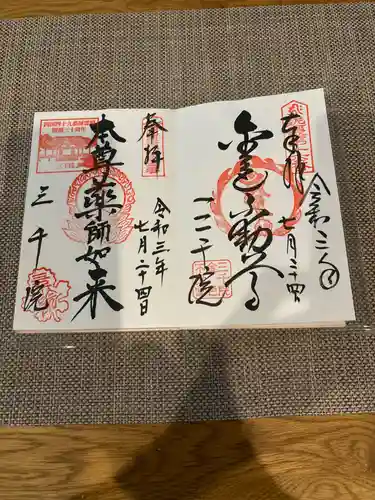 奉拝
令和三年
七月二十四日
金色不動尊
三千院
奉拝
令和三年
七月二十四日
本尊薬師如来
三千院